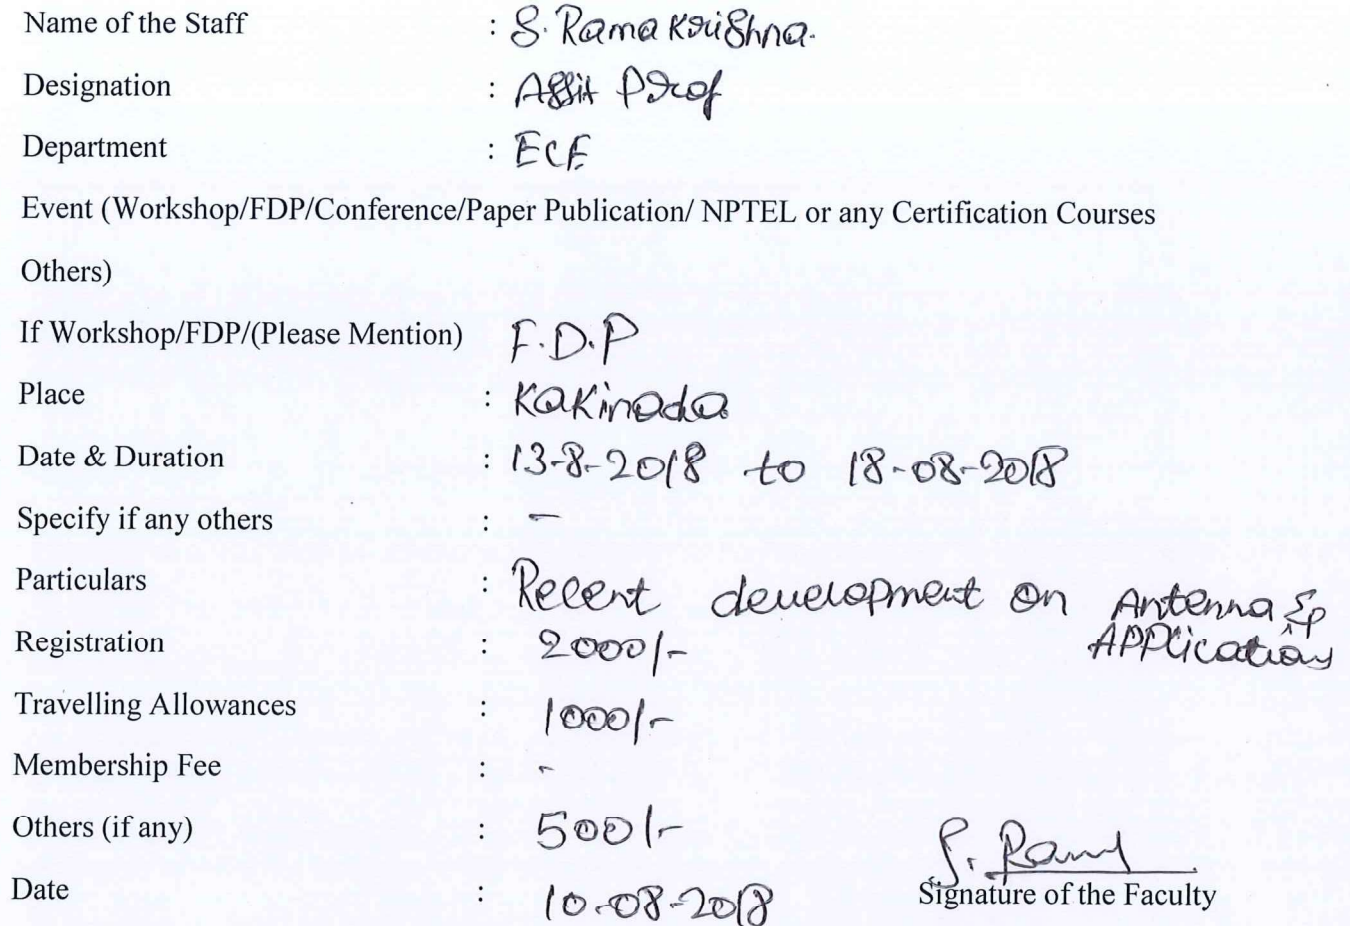 Name of the Staff : S. Rama Krishna.
Designation : Assit Prof
Department : ECE
Event (Workshop/FDP/Conference/Paper Publication/ NPTEL or any Certification Courses
Others)
If Workshop/FDP/(Please Mention) F.D.P
Place : Kakinada
Date & Duration : 13-8-2018 to 18-08-2018
Specify if any others : -
Particulars : Recent development on Antenna Sp
Applications
Registration : 2000/-
Travelling Allowances : 1000/-
Membership Fee : -
Others (if any) : 500/-
S. Ram
Date : 10-08-2018
Signature of the Faculty